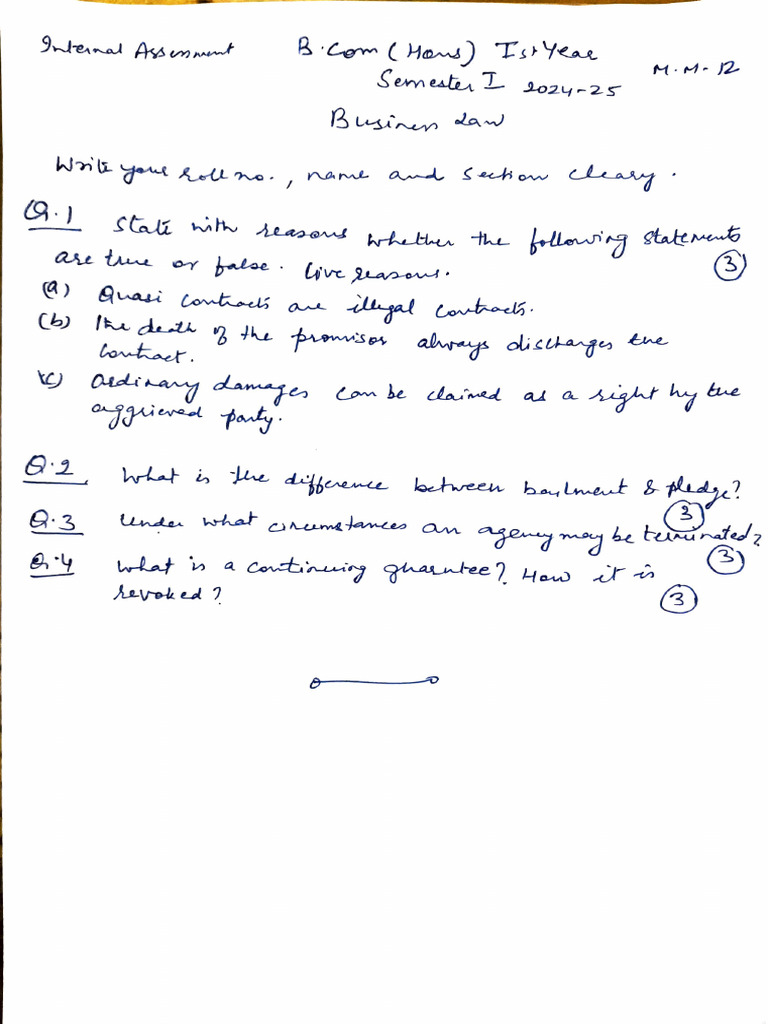 Internal Assessment B.Com (Hons) Ist Year
M.M-12
Semester I 2024-25
Business Law
Write your roll no., name and section cleary.
Q.1 State with reasons whether the following statements
are true or false. Give reasons. (3)
(a) Quasi contracts are illegal contracts.
(b) The death of the promisor always discharges the
contract.
(c) Ordinary damages can be claimed as a right by the
aggrieved party.
Q.2 What is the difference between bailment & pledge?
(3)
Q.3 Under what circumstances an agency may be terminated?
(3)
Q.4 What is a continuing gharntee? How it is
revoked? (3)